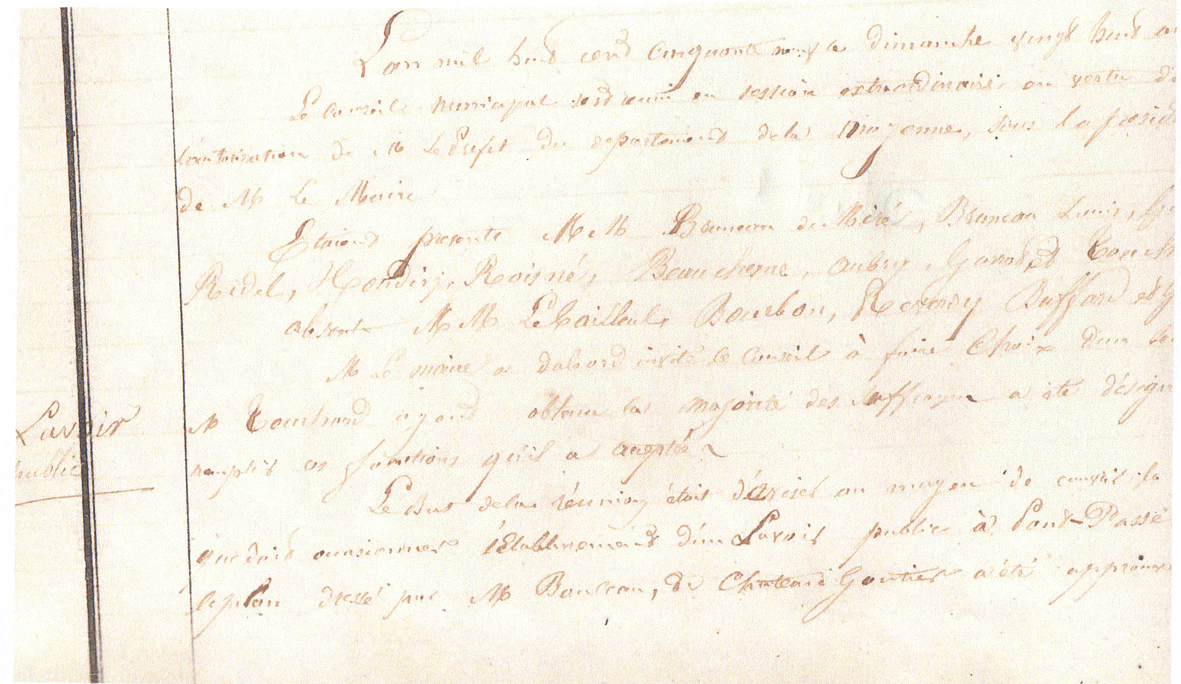 L'an mil huit cent cinquante neuf le dimanche vingt huit a
Le Conseil municipal s'est réuni en session extraordinaire en vertu de
l'autorisation de M Le Prefet du departement de la Mayenne, sous la présid
de M Le Maire
Etaient presents MM Bruneau de Miré, Bruneau Louis,
Ridel, Houdin, Roisné, Beauchene, Aubry, Garot et
absents MM Le Bailleul, Bourbon, Buffard et
M Le maire a d'abord invité le Conseil à faire Choix d'un Se
M ayant obtenu la majorité des suffrages a été désign
remplir ces fonctions qu'il a acceptée
Le But de la réunion étoit d'aviser au moyen de couvrir la
que doit occasionner l'Etablissement d'un Lavoir public à Pont-Passé
le plan dressé par M de Chateau Gontier a été approuvé
Lavoir
public